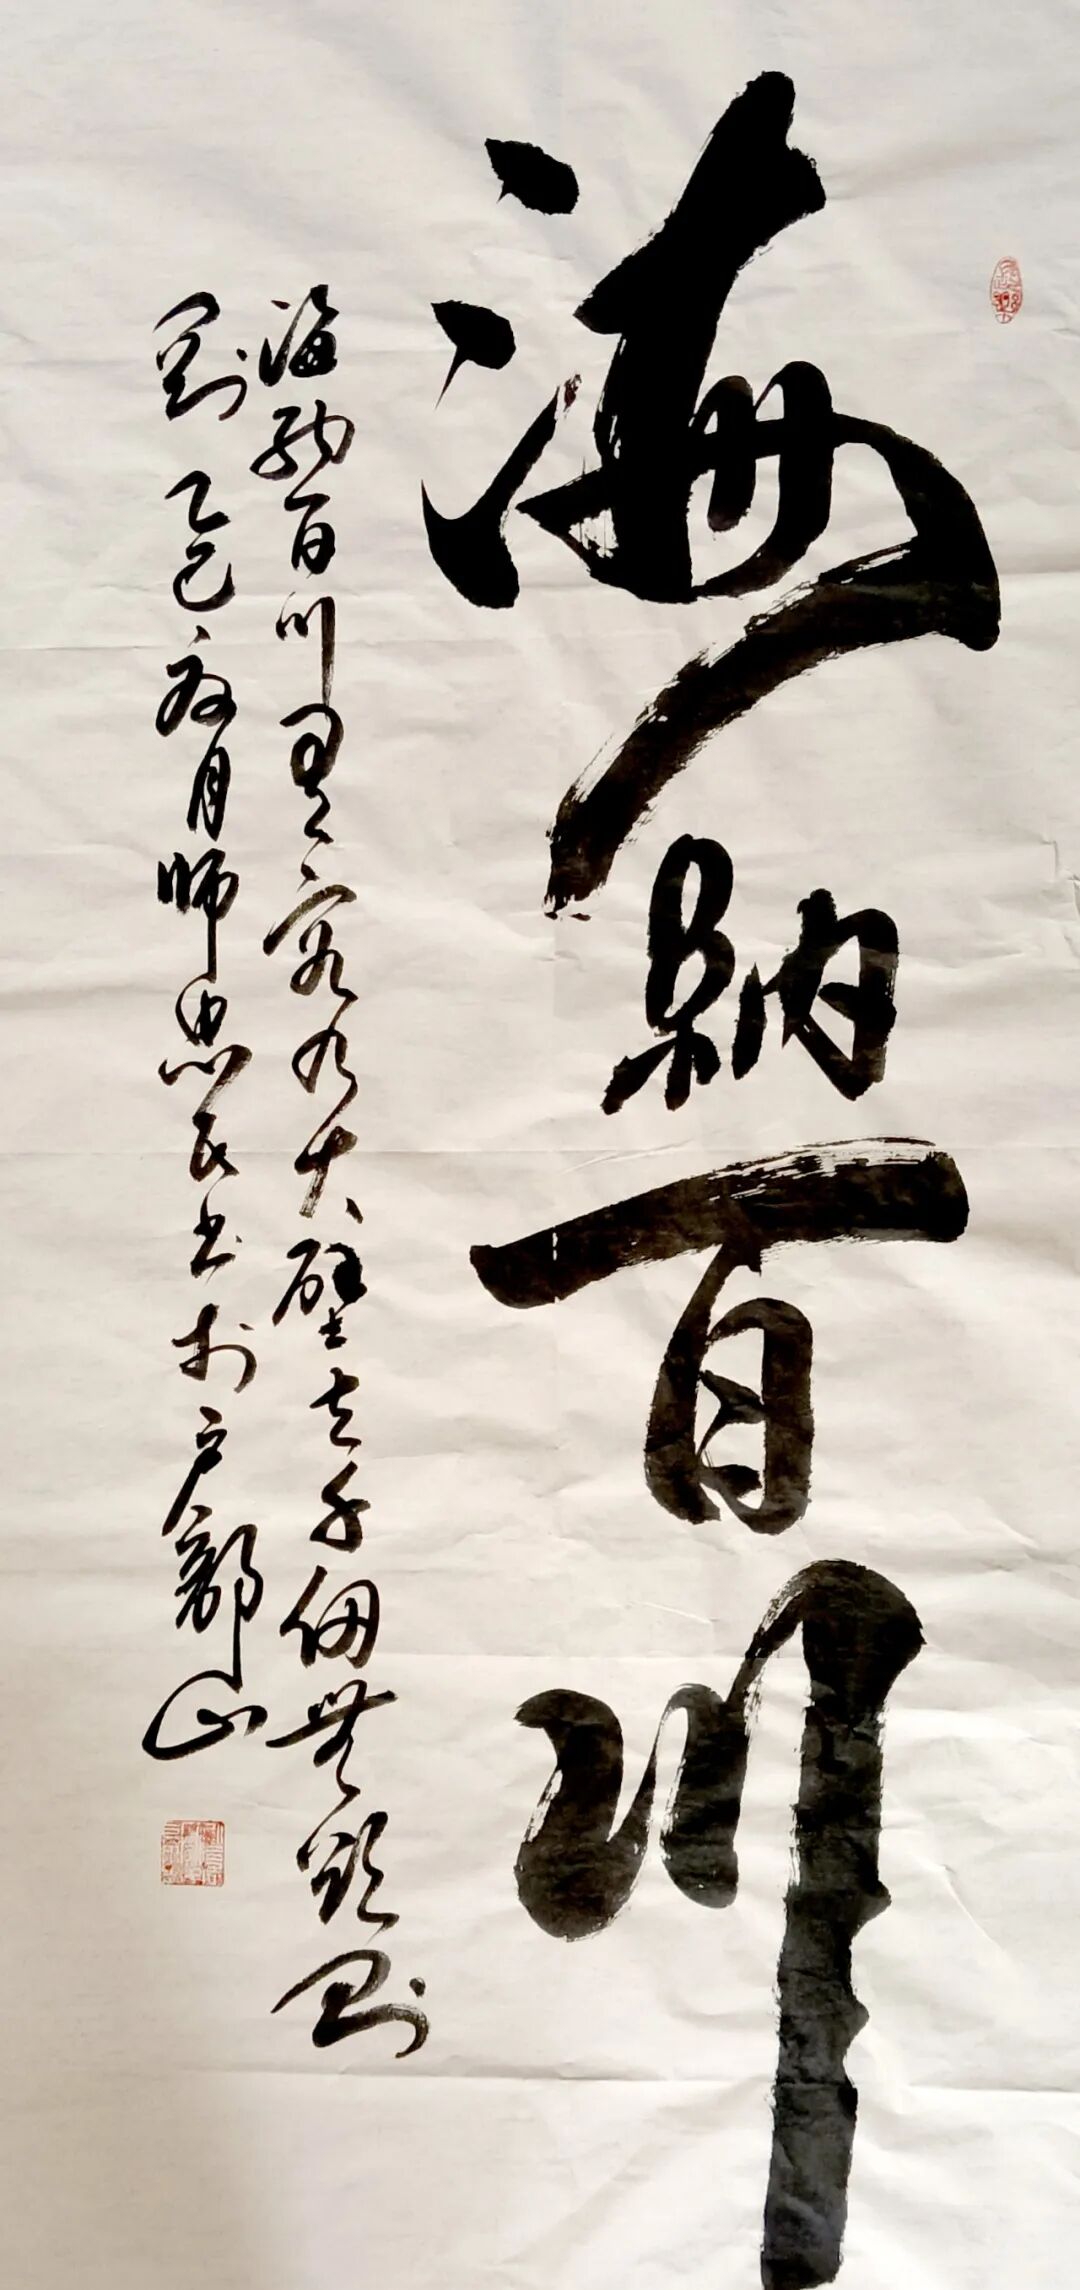 海納百川
海納百川有容乃大壁立千仞無欲則
剛 乙巳夏月師忠民書於户部山